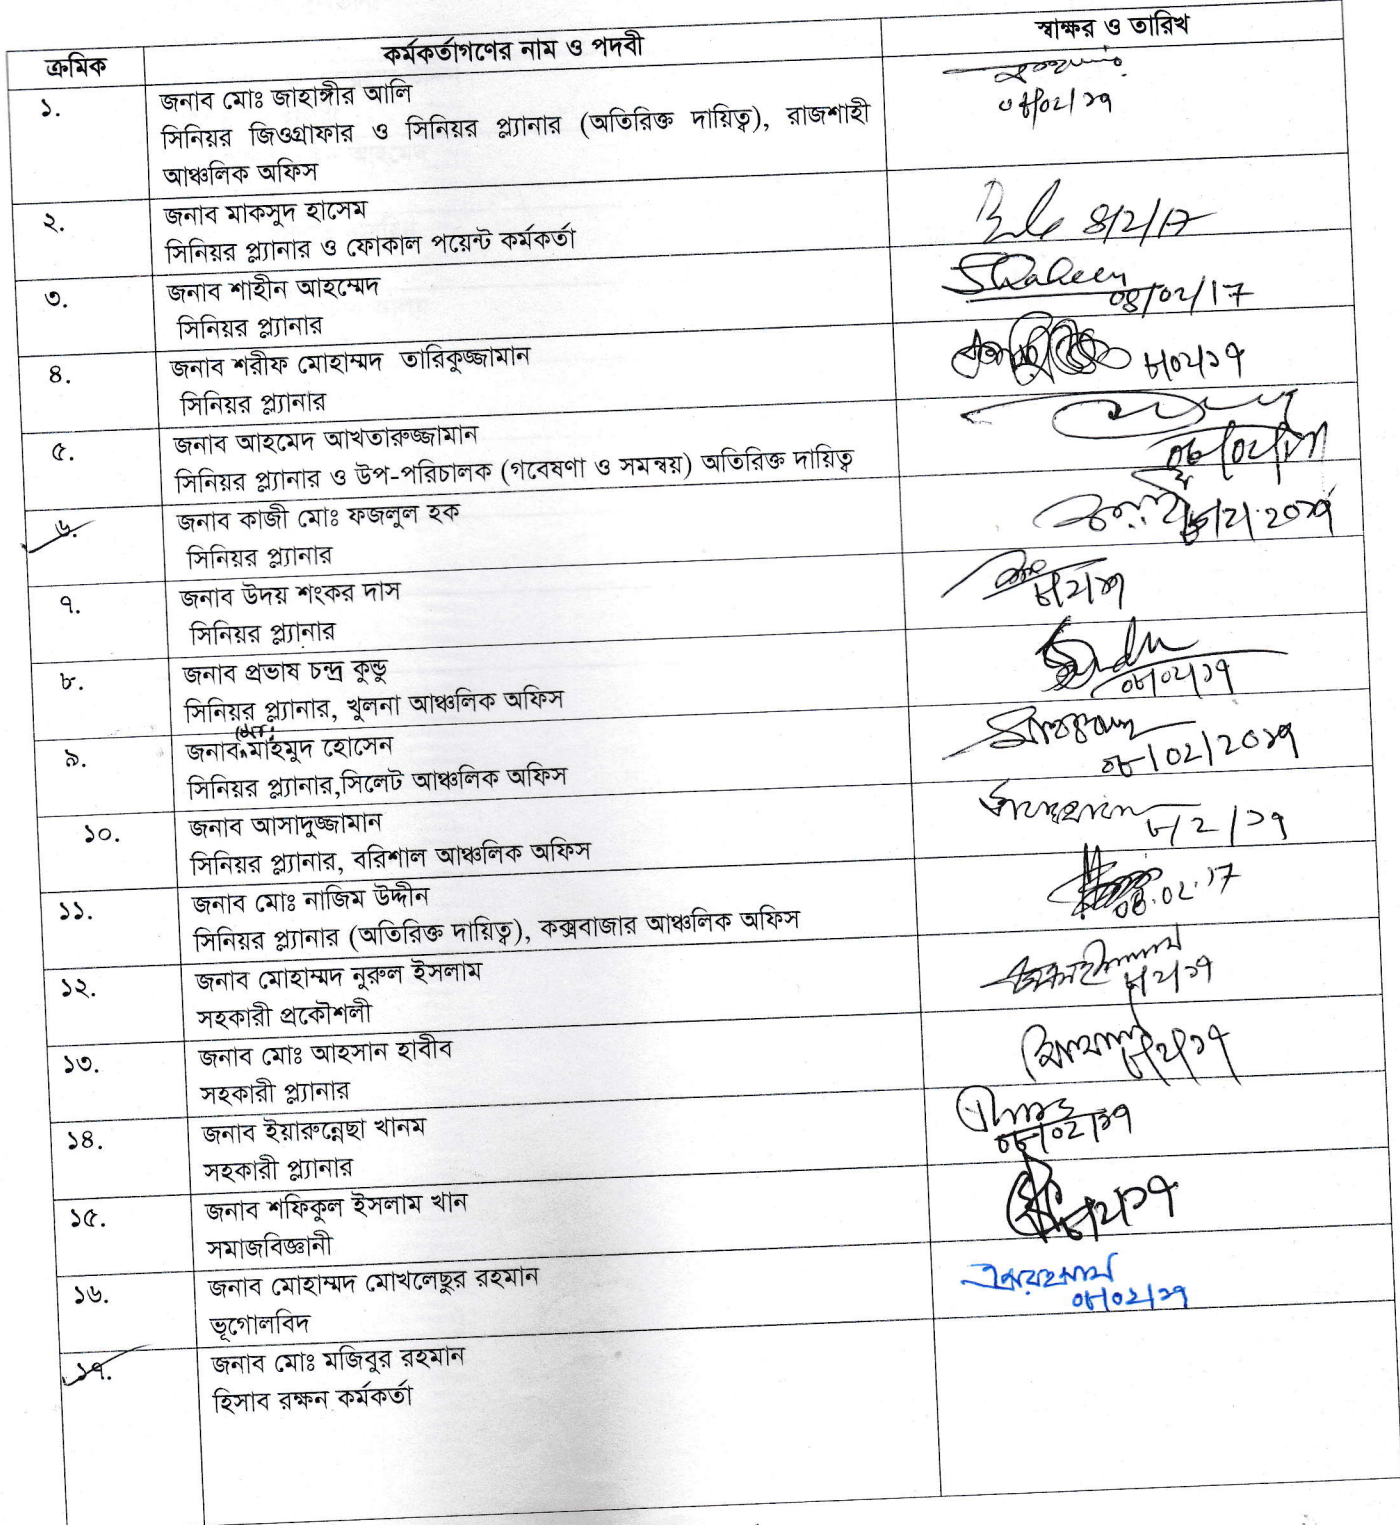 ক্রমিক কর্মকর্তাগণের নাম ও পদবী স্বাক্ষর ও তারিখ
১. জনাব মোঃ জাহাঙ্গীর আলি
সিনিয়র জিওগ্রাফার ও সিনিয়র প্ল্যানার (অতিরিক্ত দায়িত্ব), রাজশাহী
আঞ্চলিক অফিস
০৮/০২/১৭
২. জনাব মাকসুদ হাসেম
সিনিয়র প্ল্যানার ও ফোকাল পয়েন্ট কর্মকর্তা
8/2/17
৩. জনাব শাহীন আহম্মেদ
সিনিয়র প্ল্যানার
Shaheen
08/02/17
৪. জনাব শরীফ মোহাম্মদ তারিকুজ্জামান
সিনিয়র প্ল্যানার
৮/০২/১৭
৫. জনাব আহমেদ আখতারুজ্জামান
সিনিয়র প্ল্যানার ও উপ-পরিচালক (গবেষণা ও সমন্বয়) অতিরিক্ত দায়িত্ব
০৮/০২/১৭
৬. জনাব কাজী মোঃ ফজলুল হক
সিনিয়র প্ল্যানার
৮/২/২০১৭
৭. জনাব উদয় শংকর দাস
সিনিয়র প্ল্যানার
৮/২/১৭
৮. জনাব প্রভাষ চন্দ্র কুন্ডু
সিনিয়র প্ল্যানার, খুলনা আঞ্চলিক অফিস
০৮/০২/১৭
৯. জনাব মোঃ মাহমুদ হোসেন
সিনিয়র প্ল্যানার,সিলেট আঞ্চলিক অফিস
০৮/০২/২০১৭
১০. জনাব আসাদুজ্জামান
সিনিয়র প্ল্যানার, বরিশাল আঞ্চলিক অফিস
৮/২/১৭
১১. জনাব মোঃ নাজিম উদ্দীন
সিনিয়র প্ল্যানার (অতিরিক্ত দায়িত্ব), কক্সবাজার আঞ্চলিক অফিস
08.02.17
১২. জনাব মোহাম্মদ নুরুল ইসলাম
সহকারী প্রকৌশলী
৮/২/১৭
১৩. জনাব মোঃ আহসান হাবীব
সহকারী প্ল্যানার
৮/২/১৭
১৪. জনাব ইয়ারুন্নেছা খানম
সহকারী প্ল্যানার
০৮/০২/১৭
১৫. জনাব শফিকুল ইসলাম খান
সমাজবিজ্ঞানী
৮/২/১৭
১৬. জনাব মোহাম্মদ মোখলেছুর রহমান
ভূগোলবিদ
০৮/০২/১৭
১৭. জনাব মোঃ মজিবুর রহমান
হিসাব রক্ষন কর্মকর্তা